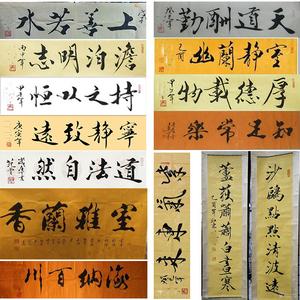 上善若水
澹泊明志
持之以恒
寧靜致遠
道法自然
室雅蘭香
海納百川
天道酬勤
室靜蘭幽
厚德載物
知足常樂
沙鷗點點清波遠
蘆荻蕭蕭白晝寒
紫氣東來